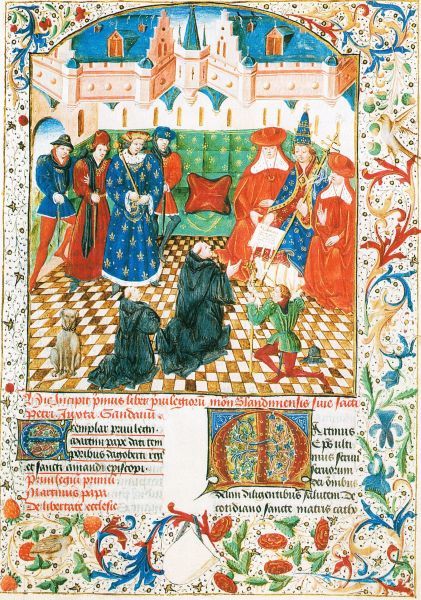 Hic Incipit pmus liber puilegioru mon Blandiniensis siue sancti
Petri Iuxta Gandauu
Exemplar priuilegii
Martini pape dat tem
poribus dagoberti
et sancti amandi episcopi
Priuilegiu primu
Martinus papa
De libertate ecclesie
Martinus
Eps ulti
mus
seruorum
dei omibus
deum diligentibus salutem De
cotidiano sancte matris